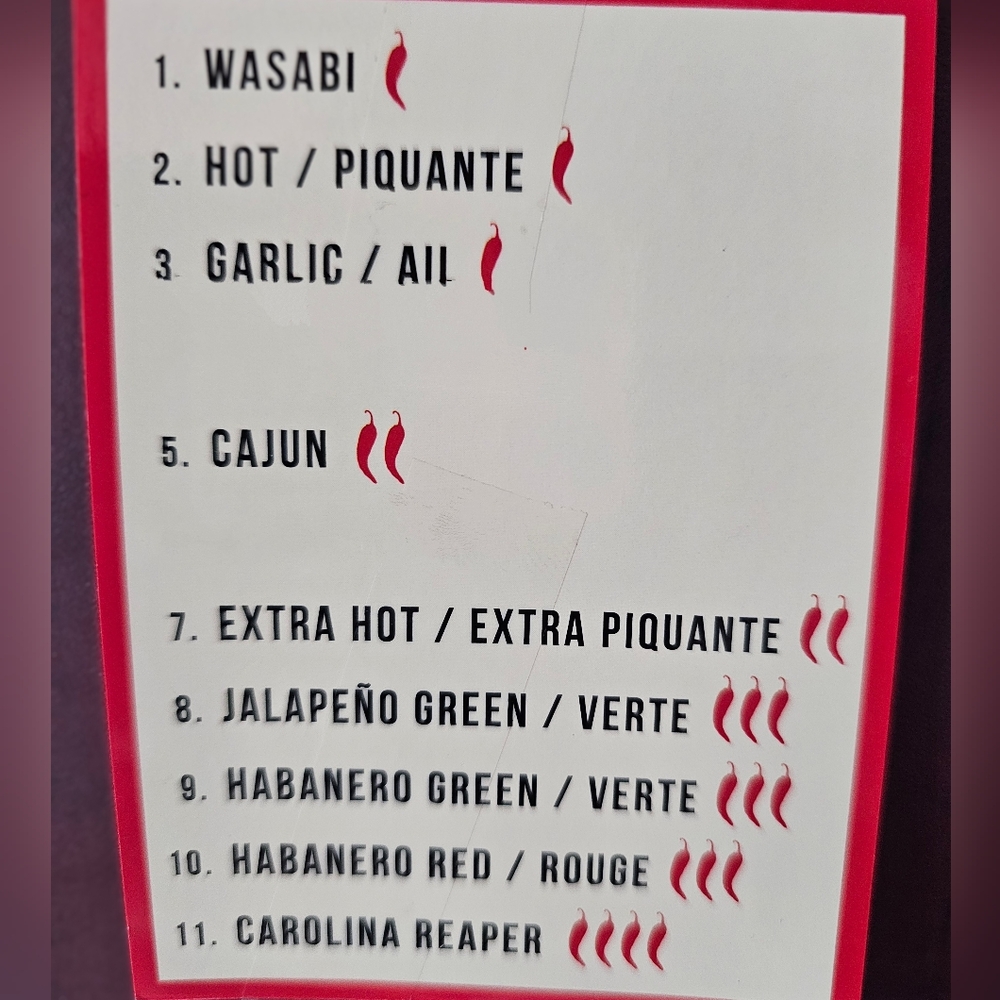 1. WASABI
2. HOT / PIQUANTE
3. GARLIC / AIL
5. CAJUN
7. EXTRA HOT / EXTRA PIQUANTE
8. JALAPEÑO GREEN / VERTE
9. HABANERO GREEN / VERTE
10. HABANERO RED / ROUGE
11. CAROLINA REAPER